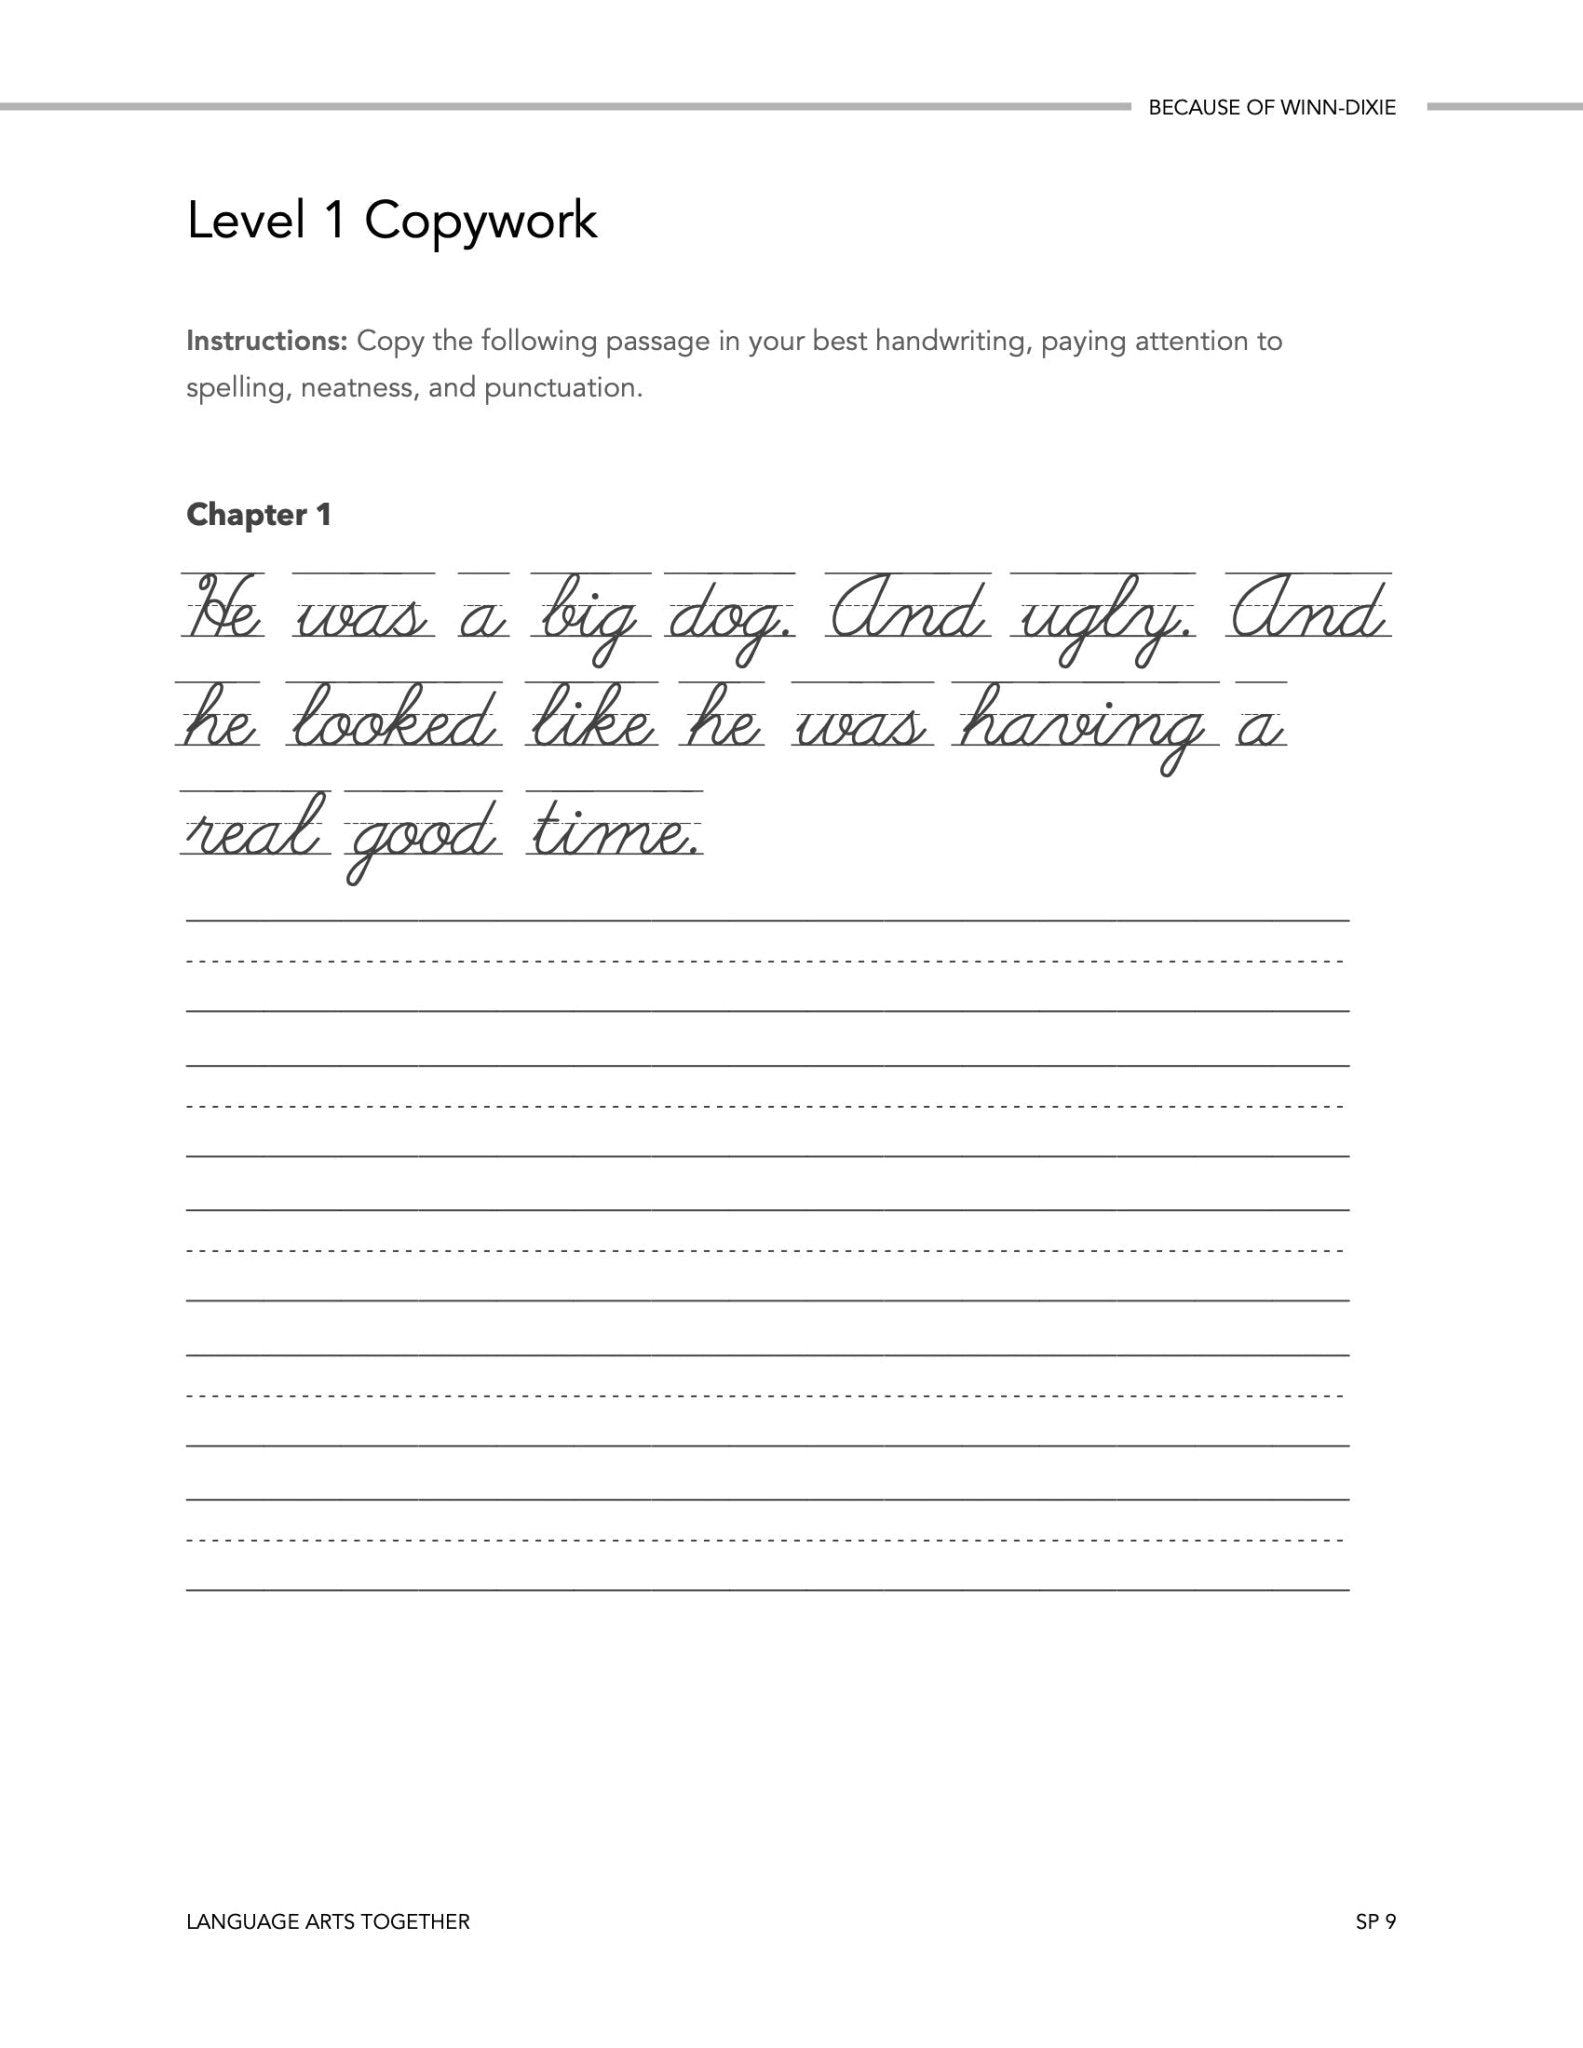 BECAUSE OF WINN-DIXIE
Level 1 Copywork
Instructions: Copy the following passage in your best handwriting, paying attention to
spelling, neatness, and punctuation.
Chapter 1
He was a big dog. And ugly. And
he looked like he was having a
real good time.
LANGUAGE ARTS TOGETHER
SP 9